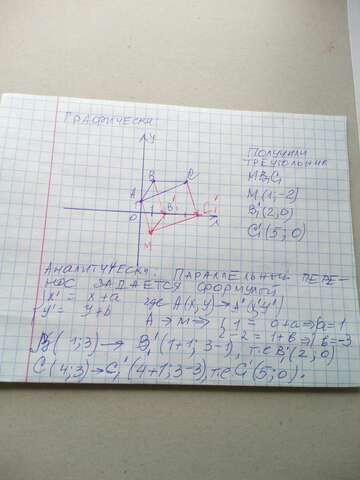 ГРАФИЧЕСКИ:
y
B
C
A
O
B₁'
C₁'
x
M
ПОЛУЧИЛИ
ТРЕУГОЛЬНИК
MB₁C₁
M₁(1;-2)
B₁'(2;0)
C₁'(5;0)
АНАЛИТИЧЕСКИ: ПАРАЛЛЕЛЬНЫЙ ПЕРЕ-
НОС ЗАДАЕТСЯ ФОРМУЛОЙ
x' = x+a где A(x,y)→A'(x',y')
y' = y+b
A→M→ {1 = 0+a ⇒ {a=1
-2 = 1+b ⇒ b=-3
B(1;3)→ B₁'(1+1; 3-3), т.е B₁'(2;0)
C(4;3)→C₁'(4+1;3-3), т.е C₁'(5;0).